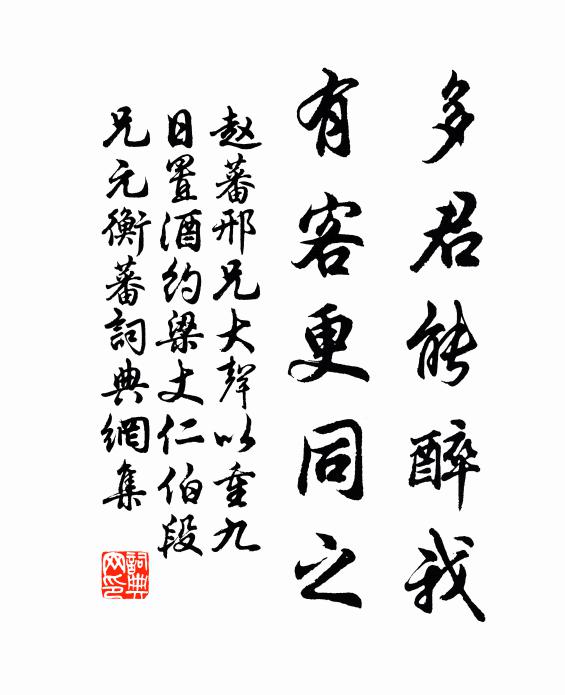 多君能醉我
有客更同之
赵蕃邢兄大聲以重九
日置酒约梁丈仁伯段
兄元衡蕃詞典網集
詞典网印